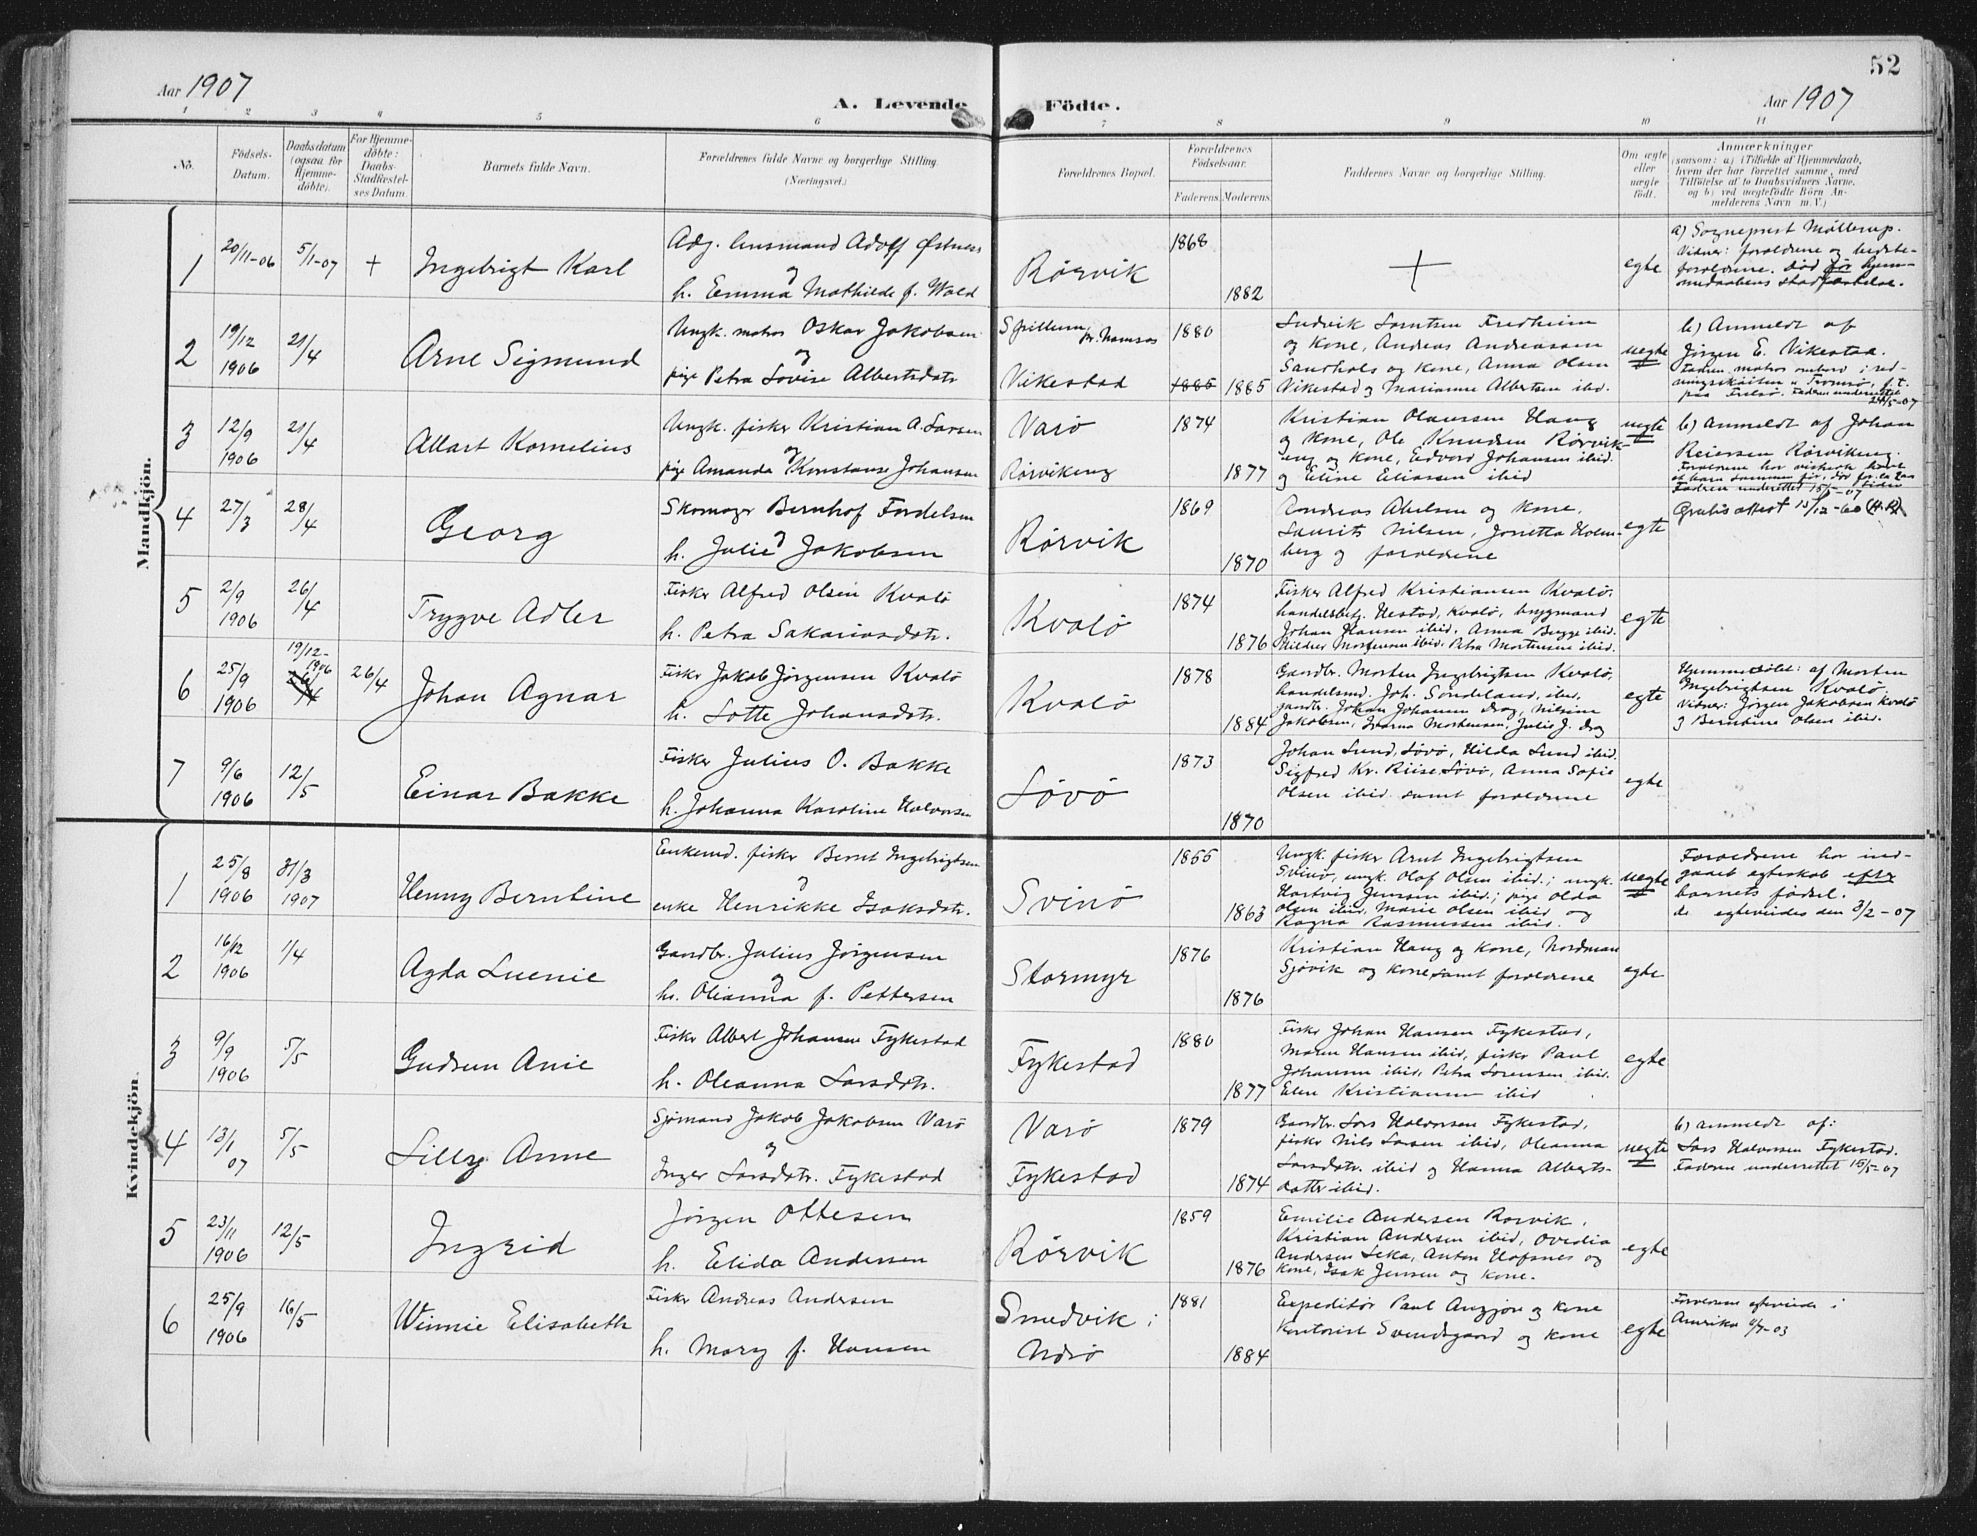 52
Aar 1907
A. Levende Födte.
Aar 1907
1 2 3 4 5 6 7 8 9 10 11
No.
Födsels-
Datum.
Daabsdatum
(ogsaa for
Hjemme-
döbte).
For Hjemme-
döbte:
Daabs-
Stadfæstel-
ses Datum.
Barnets fulde Navn.
Forældrenes fulde Navne og borgerlige Stilling.
(Næringsvei.)
Forældrenes Bopæl.
Forældrenes
Födselsaar.
Faderens. Moderens.
Faddernes Navne og borgerlige Stilling.
Om ægte
eller
uægte
födt.
Anmærkninger
(saasom: a) i Tilfælde af Hjemmedaab,
hvem der har forrettet samme, med
Tilföielse af to Daabsvidners Navne,
og b) ved uægtefödte Börn An-
melderens Navn m. V.)
Mandkjön.
1
20/11-06
5/1-07
+
Ingebrigt Karl
Adj. lensmand Adolf Østnes
og
h. Emma Mathilde f. Wald
Rørvik
1868
1882
+
egte
a) Sogneprest Møllerup.
Vidner: foreldrene og bedste-
foreldrene. Død før hjem-
medaabens stadfæstelse.
2
19/12
1906
21/4
Arne Sigmund
Ungk. matros Oskar Jakobsen
og
pige Petra Lovise Albertsdatr
Spillum pr. Namsos
Vikestad
1880
1885 1885
Ludvik Lorntsen Fredheim
og kone, Andreas Andreassen
Sandhols og kone, Anna Olsen
Vikestad og Marianne Albertsen ibid.
uegte
b) Anmeldt af
Jørgen E. Vikestad.
Fadren matros ombord i red-
ningsskøiten "Tromsø", f. t.
paa Frelsø. Fadren underrettet
24/5-07
3
12/9
1906
21/4
Allart Kornelius
Ungk. fisker Kristian A. Larsen
og
pige Amanda Konstanse Johansen
Varø
Rørvikeng
1874
1877
Kristian Olaussen Haug
og kone, Ole Knudsen Rørvik-
eng og kone, Edvard Johansen ibid.
og Eline Eliassen ibid
uegte
b) anmeldt af Johan
Reiersen Rørvikeng.
Foreldrene har visherk havt
et barn sammen før, død for ca 2 aar siden
Fadren underrettet 15/5-07
4
27/3
28/4
Georg
Skomager Bernhof Fordelsen
og
h. Julie Jakobsen
Rørvik
1869
1870
Andreas Abelsen og kone,
Laurits Nilsen, Jonetta Holm-
berg og foreldrene
egte
Gratis attest 15/12-60 (H.R)
5
2/9
1906
26/4
Trygve Adler
Fisker Alfred Olsen Kvalø
h. Petra Sakariasdatr.
Kvalø
1874
1876
Fisker Alfred Kristiansen Kvalø,
handelsbetj. Nestad, Kvalø, brygmand
Johan Hansen ibid. Anna Bugge ibid.
Hildur Mortensen ibid. Petra Mortensen ibid.
egte
6
25/9
1906
19/12-
1906
26/4
26/4
Johan Agnar
Fisker Jakob Jørgensen Kvalø
h. Lotte Johansdatr.
Kvalø
1878
1884
Gaardbr. Morten Ingebrigtsen Kvalø,
handelsmd. Joh. Sondeland, ibid,
gaardbr. Johan Johansen Drag, Nilsine
Jakobsen, Ivarna Mortensen, Julie J. Drag
egte
Hjemmedøbt: af Morten
Ingebrigtsen Kvalø.
Vidner: Jørgen Jakobsen Kvalø
og Berntine Olsen ibid.
7
9/6
1906
12/5
Einar Bakke
Fisker Julius O. Bakke
h. Johanna Karoline Halvorsen
Løvø
1873
1870
Johan Lund, Løvø, Hilda Lund ibid.
Sigfred Kr. Riise Løvø, Anna Sofie
Olsen ibid samt foreldrene
egte
Kvindekjön.
1
25/8
1906
31/3
1907
Henny Berntine
Enkemd. fisker Bernt Ingebrigtsen
og
enke Henrikke Isaksdatr.
Svinø
1855
1863
Ungk. fisker Arnt Ingebrigtsen
Svinø, ungk. Olaf Olsen ibid.; ungk.
Hartvig Jensen ibid.; pige Olda
Olsen ibid, Marie Olsen ibid og
Ragna Rasmussen ibid.
uegte
Foreldrene har ind-
gaaet egteskab efter
barnets fødsel.
de egteviedes den 3/2-07
2
16/12
1906
1/4
Agda Luenie
Gaardbr. Julius Jørgensen
og
h. Olianna f. Pettersen
Stormyr
1876
1876
Kristian Haug og kone, Nordman
Sjøvik og kone samt foreldrene
egte
3
9/9
1906
5/5
Gudrun Anie
Fisker Albert Johansen Fykestad
h. Oleanna Larsdatr.
Fykestad
1880
1877
Fisker Johan Hansen Fykestad,
Maren Hansen ibid, fisker Paul
Johansen ibid, Petra Sørensen ibid.
Elen Kristiansen ibid
egte
4
13/1
07
5/5
Lilly Anne
Sjømand Jakob Jakobsen Varø
og
Inger Larsdatr. Fykestad
Varø
Fykestad
1879
1874
Gaardbr. Lars Halvorsen Fykestad,
fisker Nils Larsen ibid, Oleanna
Larsdatr. ibid og Hanna Alberts-
datter ibid.
uegte
b) anmeldt af:
Lars Halvorsen Fykestad.
Fadren underrettet 15/5-07
5
23/11
1906
12/5
Ingrid
Jørgen Ottesen
h. Elida Andersen
Rørvik
1859
1876
Emilie Andersen Rørvik,
Kristian Andersen ibid, Ovedia
Andersen Leka, Anton Hofsnes og
kone, Isak Jensen og kone.
egte
6
25/9
1906
16/5
Winnie Elisabeth
Fisker Andreas Andersen
h. Mary f. Hansen
Smedvik i
Nærø
1881
1884
Expeditør Paul Anzjøn og kone
Kontorist Svendsgaard og kone
egte
Foreldrene egteviede i
Amerika 4/7-03